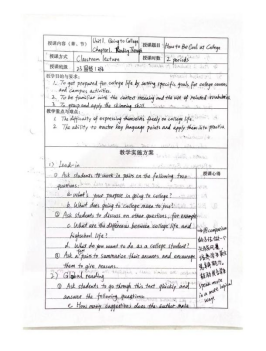 授课内容(章、节) Unit 1 Going to College
Chapter 1 Reading Through
授课题目 How to Be Cool at College
授课方式 Classroom lecture
授课时数 2 periods
授课班级
教学目的与要求:
1. To get prepared for college life by setting specific goals for college courses
and campus activities.
2. To be familiar with the context meaning and the use of related vocabularies
3. To grasp and apply the skimming skill.
教学重点与难点:
1. The difficulty of expressing themselves freely on college life.
2. The ability to master key language points and apply them into practice.
教学实施方案
1) Lead-in
授课心得
① Ask students to work in pairs on the following two
questions:
a. What's your purpose in going to college?
b. What does going to college mean to you?
② Ask students to discuss on other questions, for example
c. What are the differences between college life and
highschool life?
d. What do you want to do as a college student?
③ Ask a pair to summarize their answers and encourage
them to give reasons.
2) Global reading
① Ask students to go through this text quickly and
answer the following questions:
a. How many suggestions does the author make
comparison
speak more
in a more logical
way.